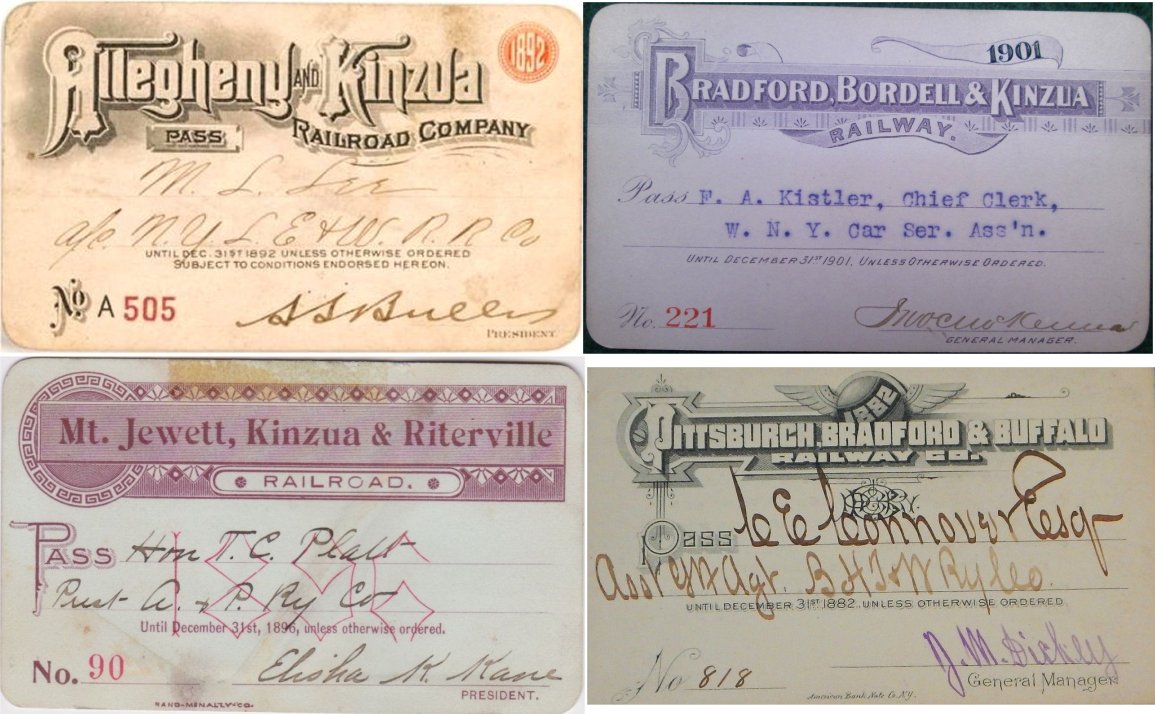 Allegheny AND Kinzua
1892
PASS RAILROAD COMPANY
M. L. Lee
a/c N. Y. L. E. & W. R. R. Co
UNTIL DEC. 31ST 1892 UNLESS OTHERWISE ORDERED
SUBJECT TO CONDITIONS ENDORSED HEREON.
No. A 505
S S Bullis
PRESIDENT.
1901
BRADFORD, BORDELL & KINZUA
RAILWAY.
Pass F. A. Kistler, Chief Clerk,
W. N. Y. Car Ser. Ass'n.
UNTIL DECEMBER 31ST 1901, UNLESS OTHERWISE ORDERED.
No. 221
GENERAL MANAGER.
Mt. Jewett, Kinzua & Riterville
RAILROAD.
PASS Hon T. C. Platt
Prest A. & P. Ry Co
1896
Until December 31st, 1896, unless otherwise ordered.
No. 90
Elisha K. Kane
PRESIDENT.
RAND-MCNALLY & CO.
1882
PITTSBURGH, BRADFORD & BUFFALO
RAILWAY CO.
Pass C E Connover Esq
Asst Gen Agt. B H T & W Ry Co.
UNTIL DECEMBER 31ST 1882, UNLESS OTHERWISE ORDERED
J. M. Dickey
No 818
General Manager
American Bank Note Co. N.Y.